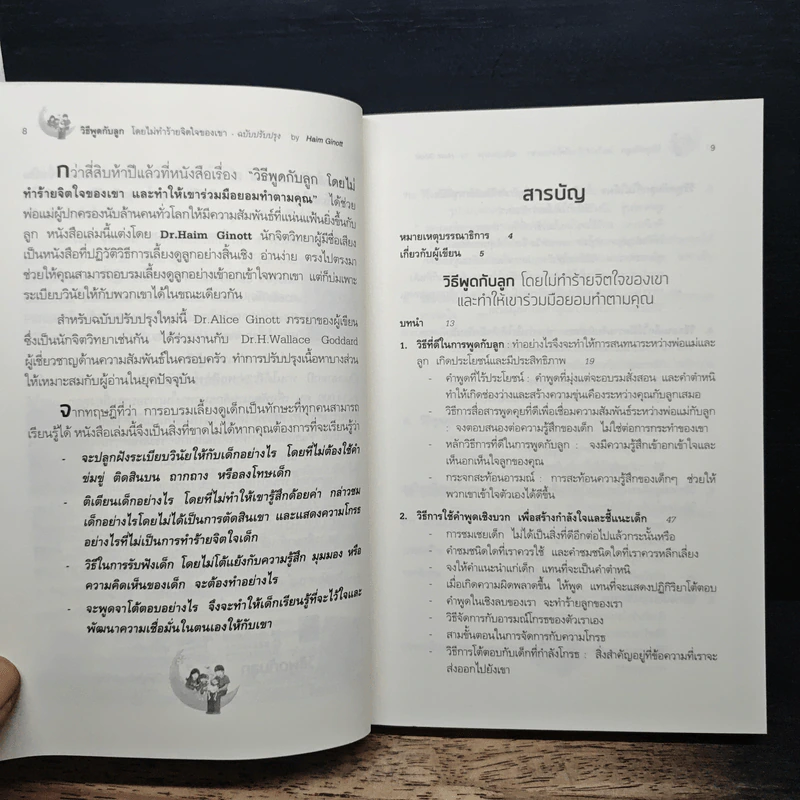 8 วิธีพูดกับลูก โดยไม่ทำร้ายจิตใจของเขา - ฉบับปรับปรุง by Haim Ginott
กว่าสี่สิบห้าปีแล้วที่หนังสือเรื่อง "วิธีพูดกับลูก โดยไม่
ทำร้ายจิตใจของเขา และทำให้เขาร่วมมือยอมทำตามคุณ" ได้ช่วย
พ่อแม่ผู้ปกครองนับล้านคนทั่วโลกให้มีความสัมพันธ์ที่แน่นแฟ้นยิ่งขึ้นกับ
ลูก หนังสือเล่มนี้แต่งโดย Dr.Haim Ginott นักจิตวิทยาผู้มีชื่อเสียง
เป็นหนังสือที่ปฏิวัติวิธีการเลี้ยงดูลูกอย่างสิ้นเชิง อ่านง่าย ตรงไปตรงมา
ช่วยให้คุณสามารถอบรมเลี้ยงดูลูกอย่างเข้าอกเข้าใจพวกเขา แต่ก็บ่มเพาะ
ระเบียบวินัยให้กับพวกเขาได้ในขณะเดียวกัน
สำหรับฉบับปรับปรุงใหม่นี้ Dr.Alice Ginott ภรรยาของผู้เขียน
ซึ่งเป็นนักจิตวิทยาเช่นกัน ได้ร่วมงานกับ Dr.H.Wallace Goddard
ผู้เชี่ยวชาญด้านความสัมพันธ์ในครอบครัว ทำการปรับปรุงเนื้อหาบางส่วน
ให้เหมาะสมกับผู้อ่านในยุคปัจจุบัน
จากทฤษฎีที่ว่า การอบรมเลี้ยงดูเด็กเป็นทักษะที่ทุกคนสามารถ
เรียนรู้ได้ หนังสือเล่มนี้จึงเป็นสิ่งที่ขาดไม่ได้หากคุณต้องการที่จะเรียนรู้ว่า
- จะปลูกฝังระเบียบวินัยให้กับเด็กอย่างไร โดยที่ไม่ต้องใช้คำ
ข่มขู่ ติดสินบน ถากถาง หรือลงโทษเด็ก
- ติเตียนเด็กอย่างไร โดยที่ไม่ทำให้เขารู้สึกด้อยค่า กล่าวชม
เด็กอย่างไรโดยไม่ได้เป็นการตัดสินเขา และแสดงความโกรธ
อย่างไรที่ไม่เป็นการทำร้ายจิตใจเด็ก
- วิธีในการรับฟังเด็ก โดยไม่โต้แย้งกับความรู้สึก มุมมอง หรือ
ความคิดเห็นของเด็ก จะต้องทำอย่างไร
- จะพูดจาโต้ตอบอย่างไร จึงจะทำให้เด็กเรียนรู้ที่จะไว้ใจและ
พัฒนาความเชื่อมั่นในตนเองให้กับเขา
9
สารบัญ
หมายเหตุบรรณาธิการ 4
เกี่ยวกับผู้เขียน 5
วิธีพูดกับลูก โดยไม่ทำร้ายจิตใจของเขา
และทำให้เขาร่วมมือยอมทำตามคุณ
บทนำ 13
1. วิธีที่ดีในการพูดกับลูก : ทำอย่างไรจึงจะทำให้การสนทนาระหว่างพ่อแม่และ
ลูก เกิดประโยชน์และมีประสิทธิภาพ 19
- คำพูดที่ไร้ประโยชน์ : คำพูดที่มุ่งแต่จะอบรมสั่งสอน และคำตำหนิ
ทำให้เกิดช่องว่างและสร้างความขุ่นเคืองระหว่างคุณกับลูกเสมอ
- วิธีการสื่อสารพูดคุยที่ดีเพื่อเชื่อมความสัมพันธ์ระหว่างพ่อแม่กับลูก
: จงตอบสนองต่อความรู้สึกของเด็ก ไม่ใช่ต่อการกระทำของเขา
- หลักวิธีการที่ดีในการพูดกับลูก : จงมีความรู้สึกเข้าอกเข้าใจและ
เห็นอกเห็นใจลูกของคุณ
- กระจกสะท้อนอารมณ์ : การสะท้อนความรู้สึกของเด็กๆ ช่วยให้
พวกเขาเข้าใจตัวเองได้ดีขึ้น
2. วิธีการใช้คำพูดเชิงบวก เพื่อสร้างกำลังใจและชี้แนะเด็ก 47
- การชมเชยเด็ก ไม่ได้เป็นสิ่งที่ดีอีกต่อไปแล้วกระนั้นหรือ
- คำชมชนิดใดที่เราควรใช้ และคำชมชนิดใดที่เราควรหลีกเลี่ยง
- จงให้คำแนะนำแก่เด็ก แทนที่จะเป็นคำตำหนิ
- เมื่อเกิดความผิดพลาดขึ้น ให้พูด แทนที่จะแสดงปฏิกิริยาโต้ตอบ
- คำพูดในเชิงลบของเรา จะทำร้ายลูกของเรา
- วิธีจัดการกับอารมณ์โกรธของตัวเราเอง
- สามขั้นตอนในการจัดการกับความโกรธ
- วิธีการโต้ตอบกับเด็กที่กำลังโกรธ : สิ่งสำคัญอยู่ที่ข้อความที่เราจะ
ส่งออกไปยังเขา